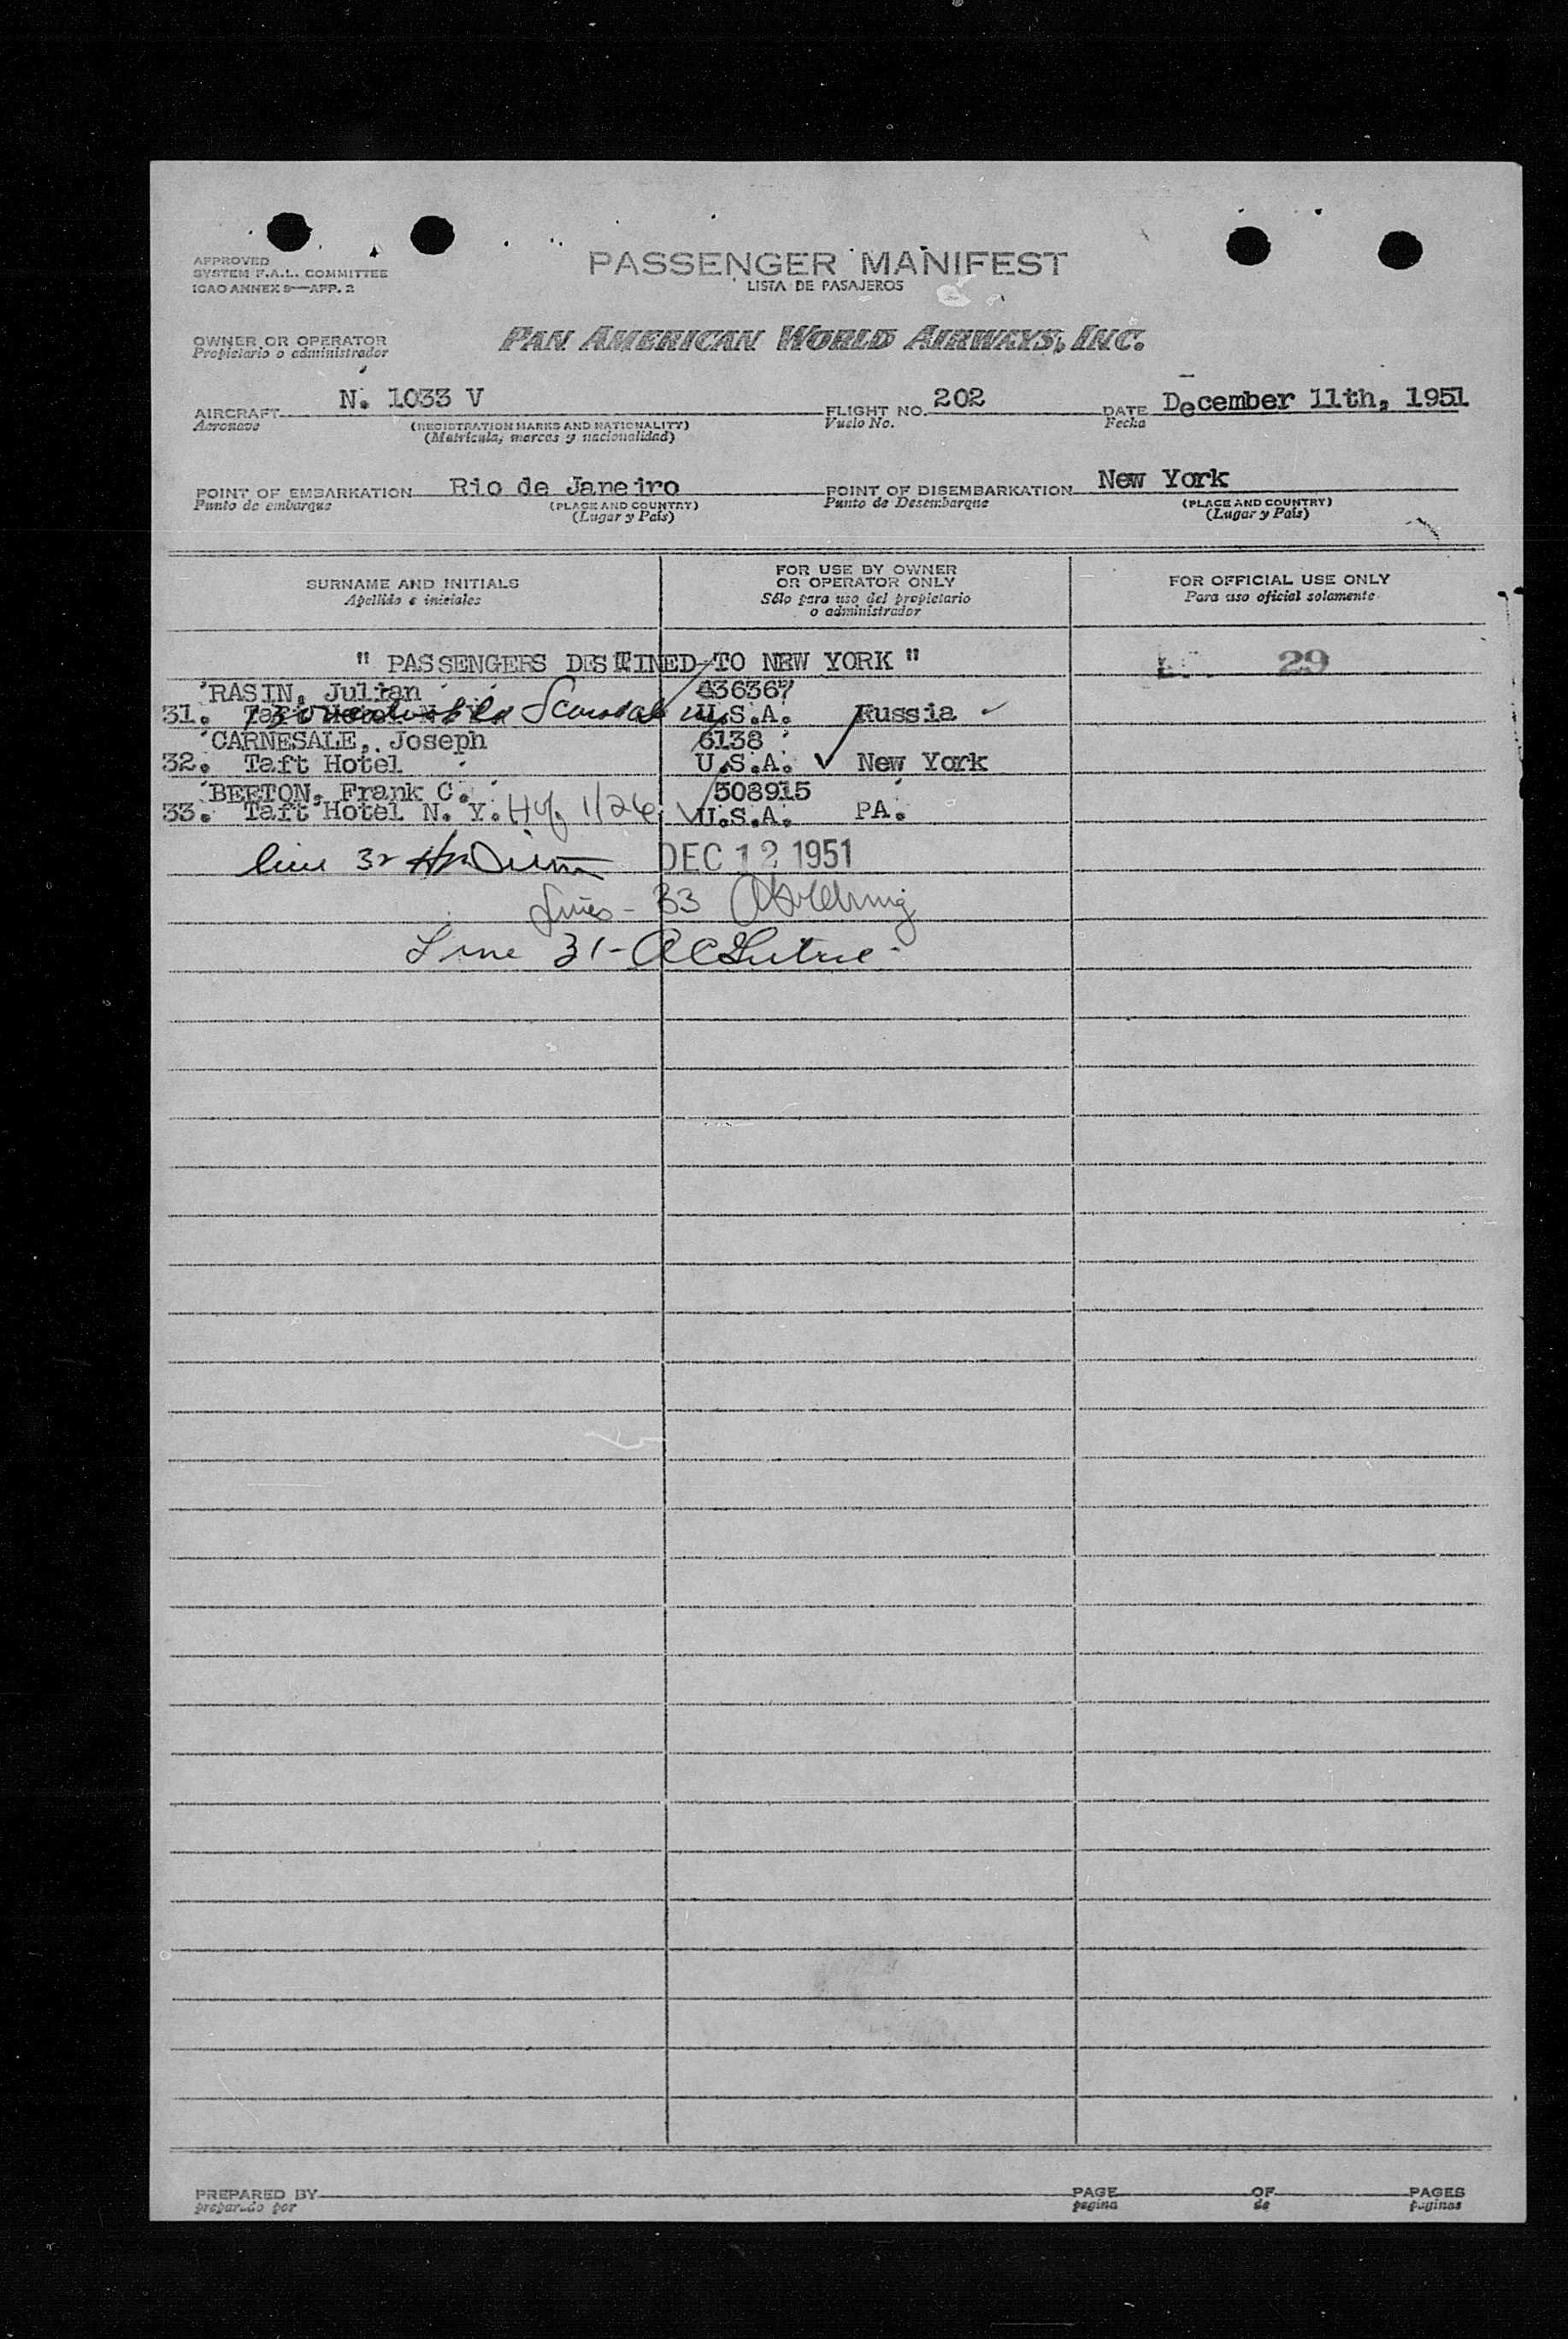 APPROVED
SYSTEM F.A.L. COMMITTEE
ICAO ANNEX 9—APP. 2
PASSENGER MANIFEST
LISTA DE PASAJEROS
OWNER OR OPERATOR
Propietario o administrador
PAN AMERICAN WORLD AIRWAYS, INC.
AIRCRAFT N. 1033 V FLIGHT NO. 202 DATE December 11th, 1951
Aeronave (REGISTRATION MARKS AND NATIONALITY) Vuelo No. Fecha
(Matrícula, marcas y nacionalidad)
POINT OF EMBARKATION Rio de Janeiro POINT OF DISEMBARKATION New York
Punto de embarque (PLACE AND COUNTRY) Punto de Desembarque (PLACE AND COUNTRY)
(Lugar y País) (Lugar y País)
SURNAME AND INITIALS
Apellido e iniciales
FOR USE BY OWNER
OR OPERATOR ONLY
Sólo para uso del propietario
o administrador
FOR OFFICIAL USE ONLY
Para uso oficial solamente
" PASSENGERS DESTINED TO NEW YORK " 29
RASIN, Julian 636367
31. U.S.A. Russia
CARNESALE, Joseph 6138
32. Taft Hotel U.S.A. New York
BERTON, Frank C. 508915
33. Taft Hotel N. Y. 1/26 U.S.A. PA.
line 32 DEC 12 1951
Lines - 33
Line 31-
PREPARED BY PAGE OF PAGES
preparado por pagina de paginas